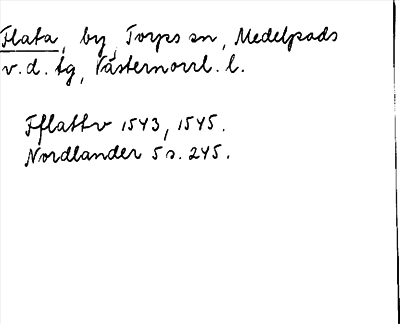 Flata, by, Torps sn, Medelpads
v.d. tg, Västernorrl. l.
Fflattv 1543, 1545.
Nordlander 5 s. 245.